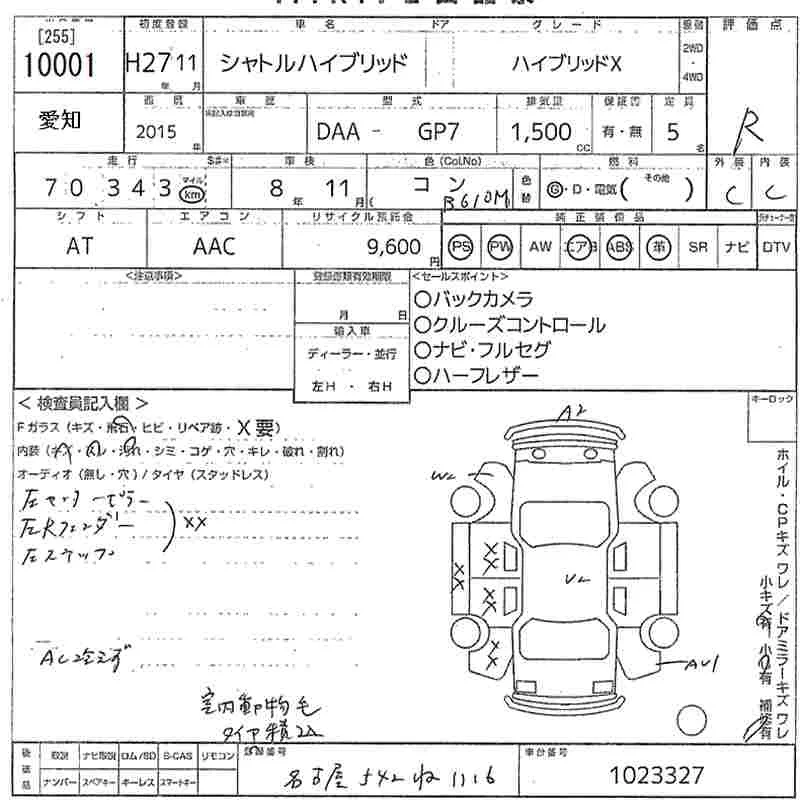 [255]
10001
初度登録
H27 11
年 月
車名
シャトルハイブリッド
ドア
グレード
ハイブリッドX
2WD
・
4WD
評価点
R
愛知
西暦
2015
年
車歴
型式
DAA - GP7
排気量
1,500
CC
有・無
定員
5
名
走行
70343
マイル
km
車検
8 年 11 月
色(CoL.No)
コン
R610M
色替
燃料
G・D・電気( その他 )
外装
C
内装
C
シフト
AT
エアコン
AAC
リサイクル預託金
9,600
円
純正装備品
PS PW AW エアB ABS 革 SR ナビ DTV
<注意事項>
登録書類有効期限
月 日
輸入車
ディーラー・並行
左H ・ 右H
<セールスポイント>
○バックカメラ
○クルーズコントロール
○ナビ・フルセグ
○ハーフレザー
<検査員記入欄>
Fガラス(キズ・飛石・ヒビ・リペア跡・X要)
内装(キズ・汚れ・シミ・コゲ・穴・キレ・破れ・割れ)
オーディオ(無し・穴)/タイヤ(スタッドレス)
左センターピラー
左Rフェンダー
左ステップ
XX
AC冷えず
室内動物毛
タイヤ積込
キーロック
A2
W2
XX
XX
XX
XX
U2
AU1
ホイル・CPキズ ワレ/ドアミラーキズ ワレ
小キズ有 小凹有 補修有
後納品
取説 ナビ取説 ロム/SD B-CAS リモコン
ナンバー スペアキー キーレス スマートキー
登録番号
名古屋 542 ね 1116
車台番号
1023327